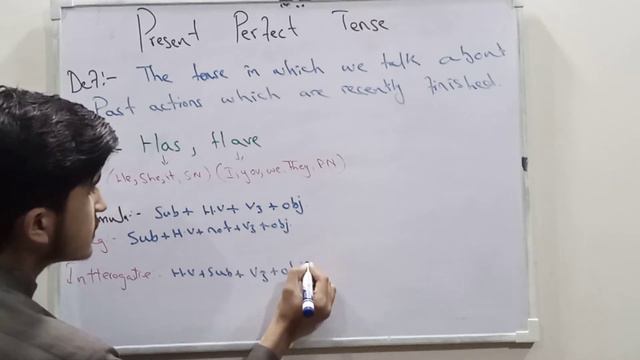 Present Perfect Tense
Def:- The tense in which we talk about
Past actions which are recently finished.
Has, Have
(He, She, it, SN) (I, you, we, They, PN)
Sub + H.V + V3 + obj
Sub + H.V + not + V3 + obj
Intterogatie - H.V + Sub + V3 +